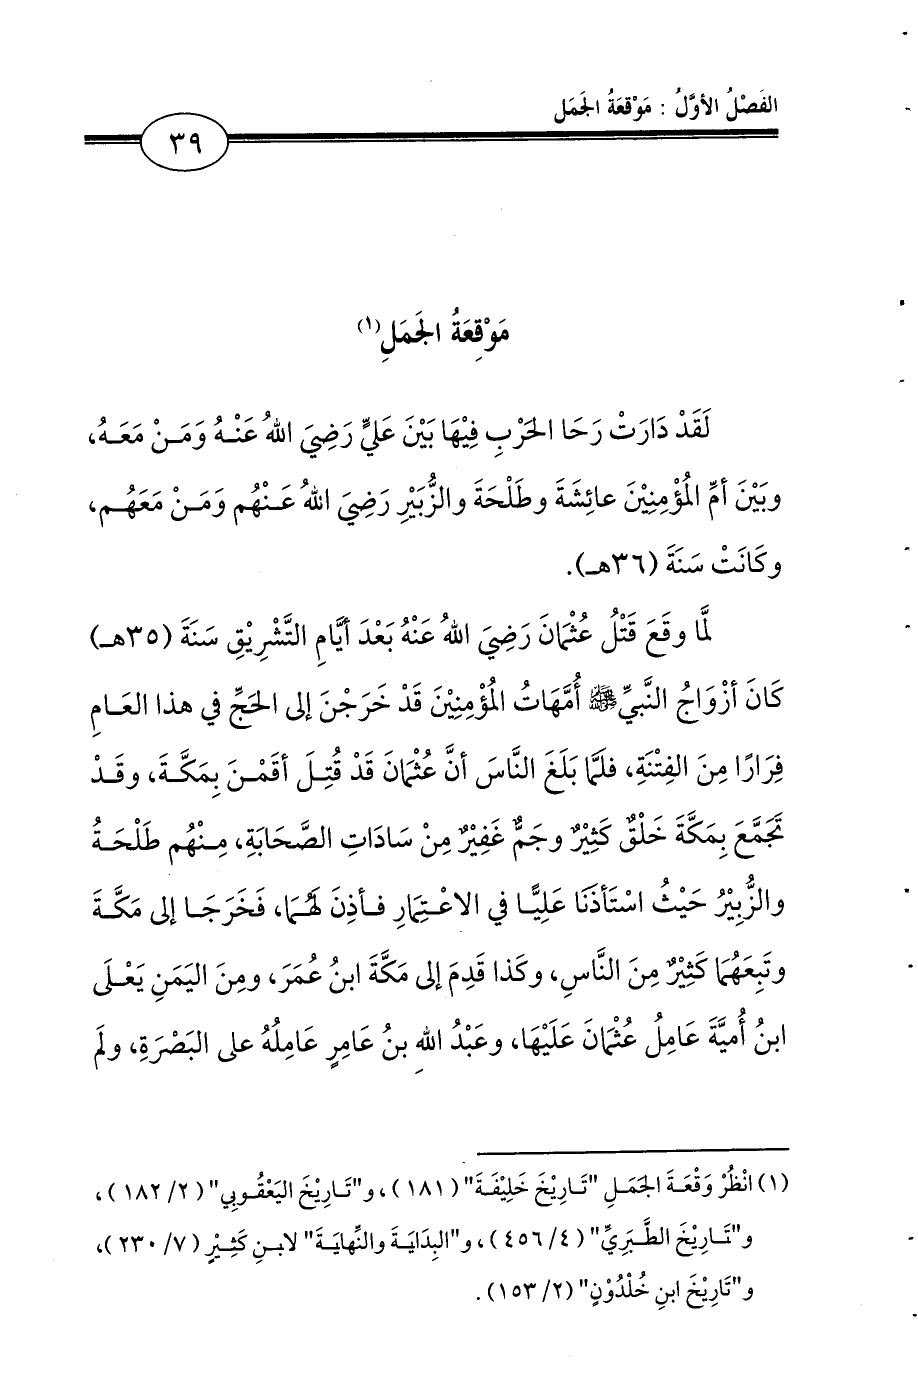 الفَصْلُ الأوَّلُ : مَوْقعَةُ الجَمَل
٣٩
مَوْقِعَةُ الجَمَلِ(١)
لَقَدْ دَارَتْ رَحَا الحَرْبِ فِيْهَا بَيْنَ عَليٍّ رَضِيَ اللهُ عَنْهُ وَمَنْ مَعَهُ،
وبَيْنَ أمِّ المُؤْمِنِيْنَ عائِشَةَ وطَلْحَةَ والزُّبَيْرِ رَضِيَ اللهُ عَنْهُم وَمَنْ مَعَهُم،
وكَانَتْ سَنَةَ (٣٦هـ).
لمَّا وقَعَ قَتْلُ عُثْمانَ رَضِيَ اللهُ عَنْهُ بَعْدَ أيَّامِ التَّشْرِيقِ سَنَةَ (٣٥هـ)
كَانَ أزْوَاجُ النَّبيِّ ﷺ أُمَّهَاتُ المُؤْمِنِيْنَ قَدْ خَرَجْنَ إلى الحَجِّ في هذا العَامِ
فِرَارًا مِنَ الفِتْنَةِ، فلَمَّا بَلَغَ النَّاسَ أنَّ عُثْمانَ قَدْ قُتِلَ أقَمْنَ بِمَكَّةَ، وقَدْ
تَجَمَّعَ بِمَكَّةَ خَلْقٌ كَثِيْرٌ وجَمٌّ غَفِيْرٌ مِنْ سَادَاتِ الصَّحَابَةِ، مِنْهُم طَلْحَةُ
والزُّبِيْرُ حَيْثُ اسْتَأذَنَا عَلِيًّا في الاعْتِمارِ فأذِنَ لَهُمَا، فَخَرَجَا إلى مَكَّةَ
وتَبِعَهُمَا كَثِيْرٌ مِنَ النَّاسِ، وكَذا قَدِمَ إلى مَكَّةَ ابنُ عُمَرَ، ومِنَ اليَمَنِ يَعْلَى
ابنُ أُميَّةَ عَامِلُ عُثْمانَ عَلَيْهَا، وعَبْدُ اللهِ بنُ عَامِرٍ عَامِلُهُ على البَصْرَةِ، ولَم
(١) انْظُرْ وَقْعَةَ الجَمَلِ "تَارِيْخَ خَلِيْفَةَ" (١٨١)، و"تَارِيْخَ اليَعْقُوبي" (٢/ ١٨٢)،
و"تَارِيْخَ الطَّبَرِيِّ" (٤/ ٤٥٦)، و"البِدَايَةَ والنِّهايَةَ" لابنِ كَثِيْرٍ (٧/ ٢٣٠)،
و"تَارِيْخَ ابنِ خُلْدُوْنٍ" (٢/ ١٥٣).